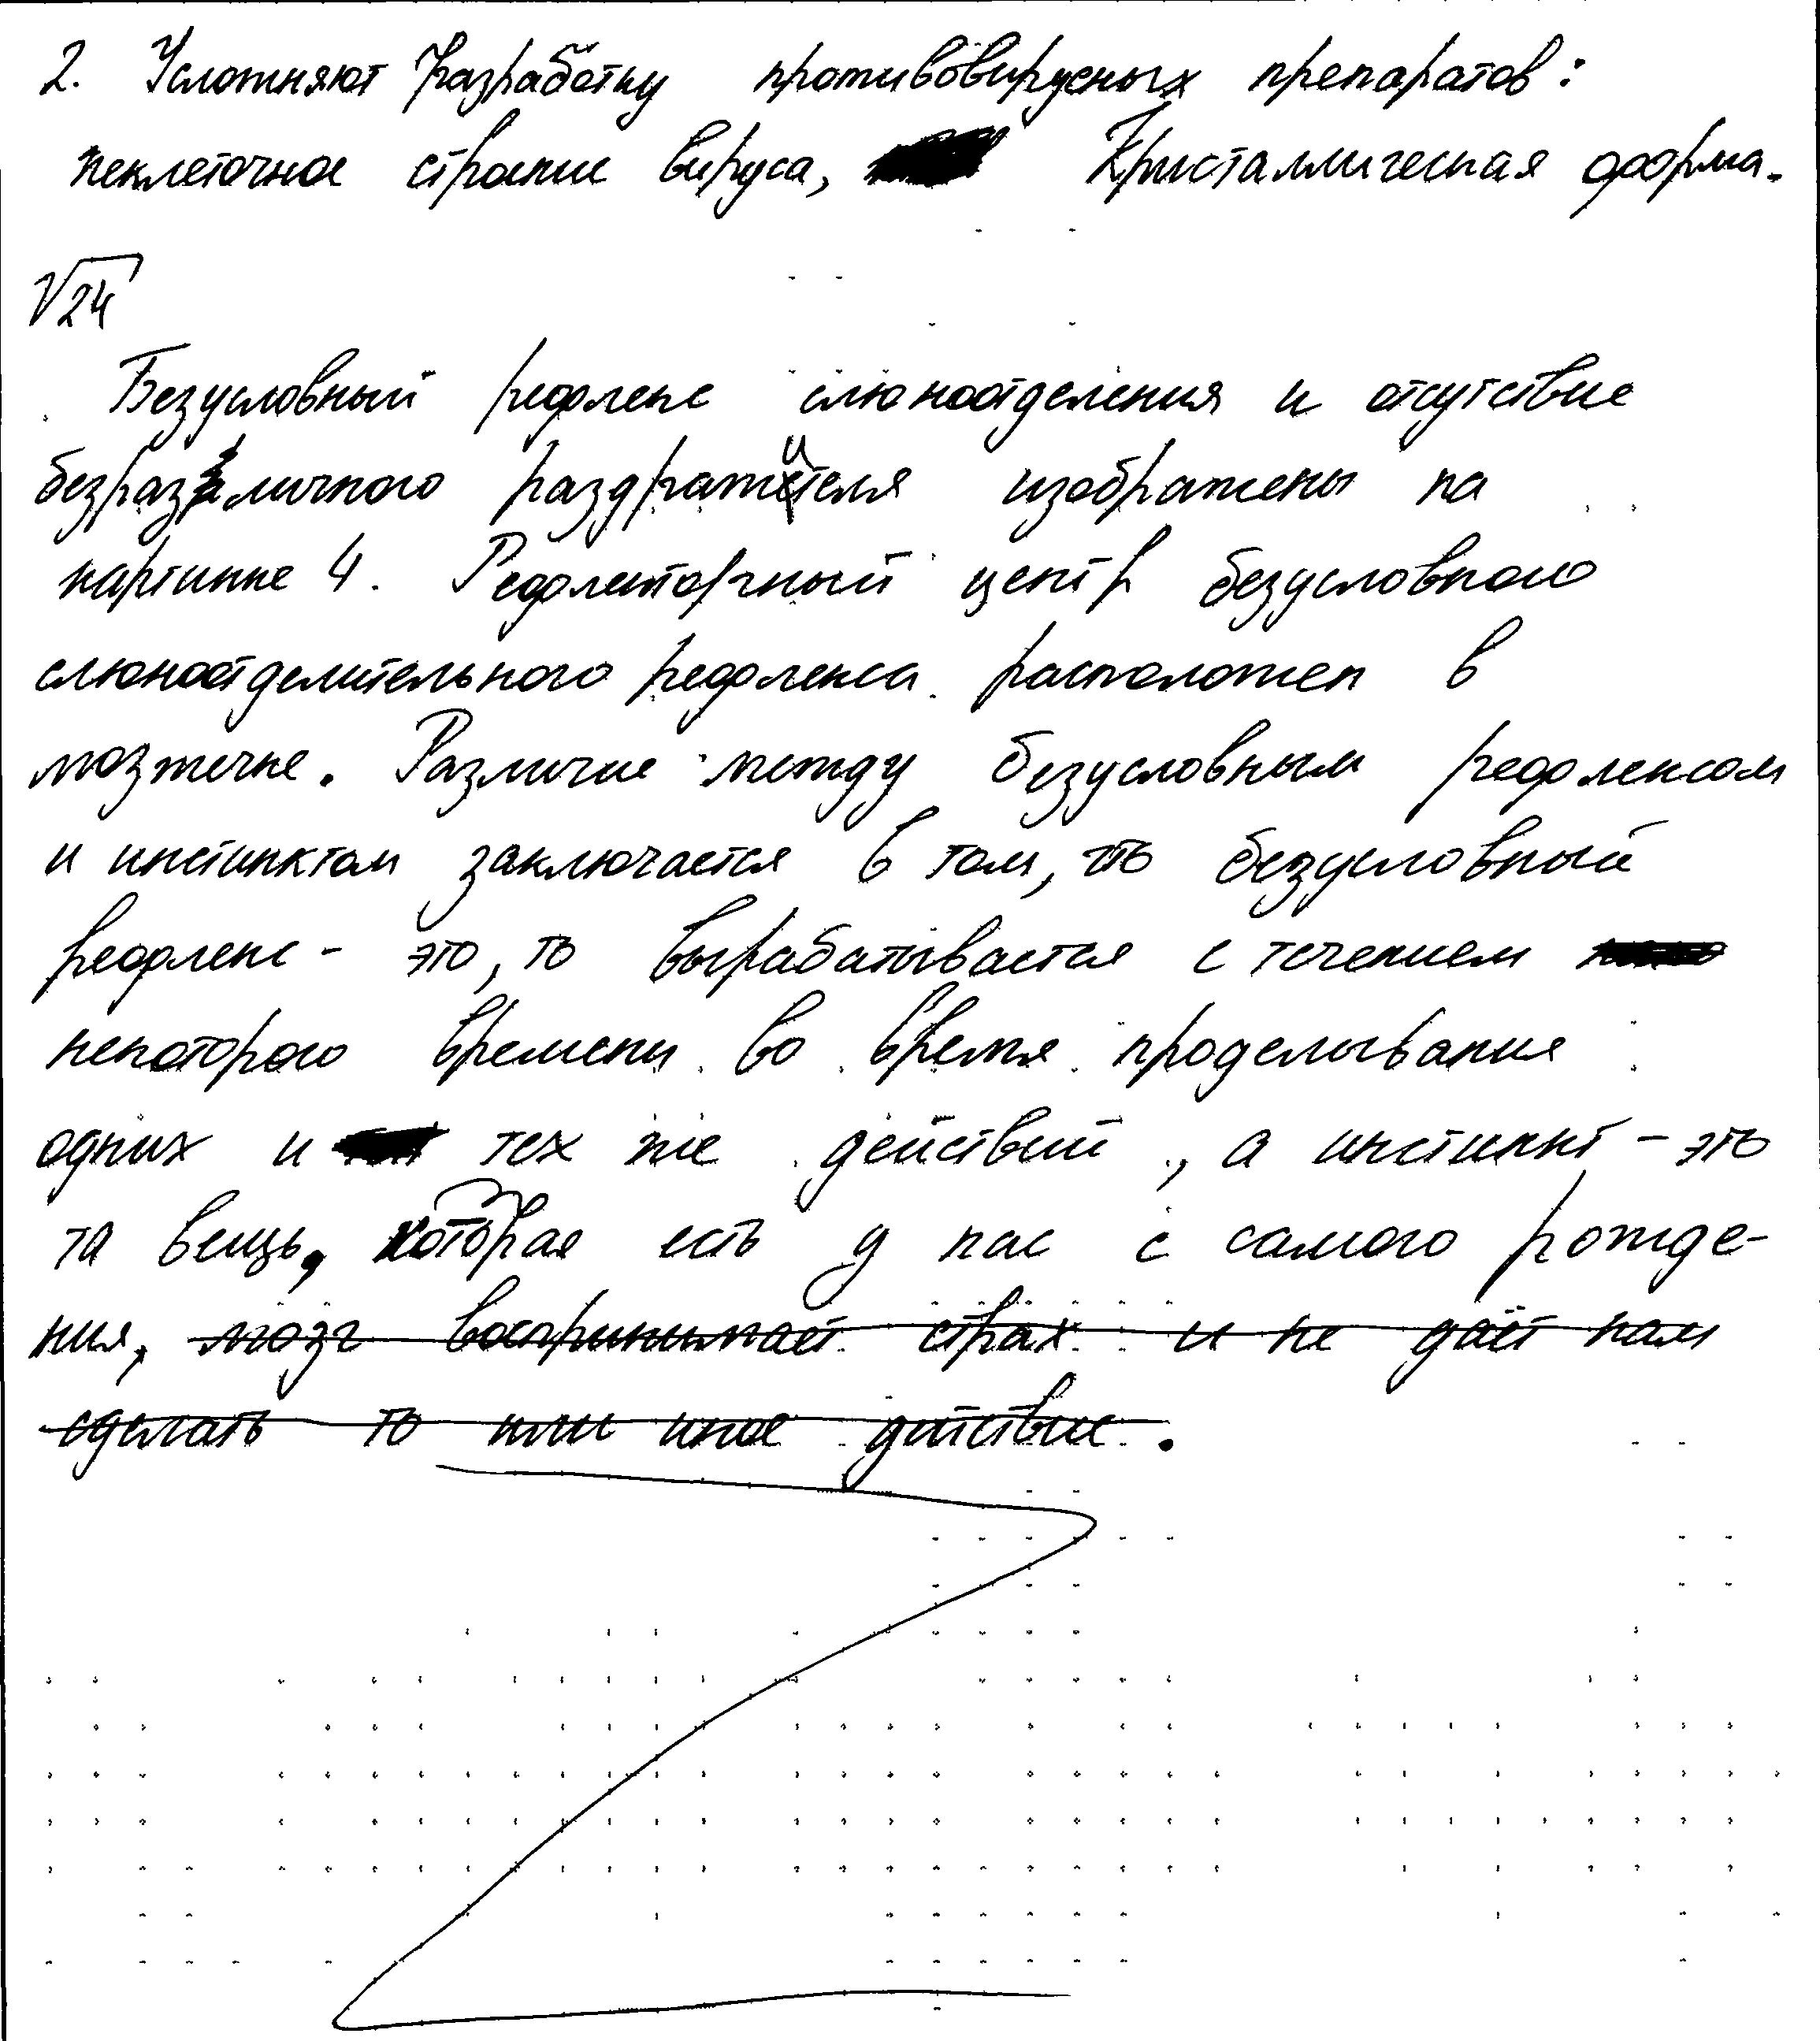 2. Усложняют разработку противовирусных препаратов:
неклеточное строение вируса, Кристаллическая форма.
√24
Безусловный рефлекс слюноотделения и отсутствие
безразличного раздражителя изображены на
картинке 4. Рефлекторный центр безусловного
слюноотделительного рефлекса расположен в
мозжечке. Различие между безусловным рефлексом
и инстинктом заключается в том, что безусловный
рефлекс - это, то вырабатывается с течением
некоторого времени во время проделывания
одних и тех же действий, а инстинкт - это
та вещь, которая есть у нас с самого рожде-
ния, мозг воспринимает страх и не даёт нам
сделать то или иное действие.